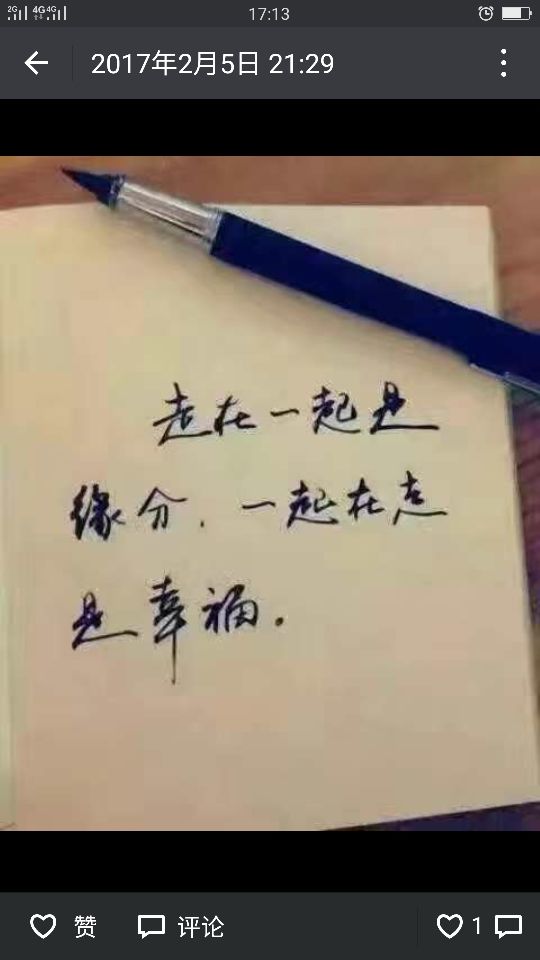 2G 4G 4G 17:13
2017年2月5日 21:29
走在一起是
缘分，一起在走
是幸福。
赞 评论 1